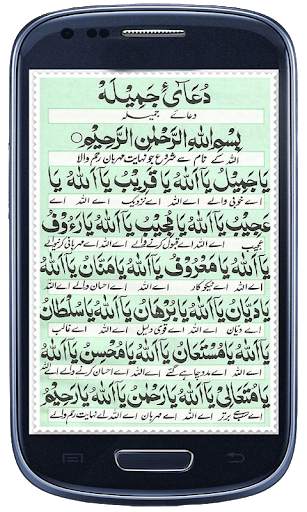 دُعَائے جَمِيلَه
دعائے جمیلہ
بِسْمِ اللهِ الرَّحْمٰنِ الرَّحِيْمِ
اللہ کے نام سے شروع جو نہایت مہربان رحم والا
يَا جَمِيْلُ يَا اَللهُ يَا قَرِيْبُ يَا اَللهُ يَا
اے خوبی والے اے اللہ اے نزدیک اے اللہ اے
عَجِيْبُ يَا اَللهُ يَا مُجِيْبُ يَا اَللهُ يَا رَءُوْفُ
عجیب اے اللہ اے قبول کرنے والے اے اللہ اے مہربانی کرنیوالے
يَا اَللهُ يَا مَعْرُوْفُ يَا اَللهُ يَا مَنَّانُ يَا اَللهُ
اے اللہ اے نیکوکار اے اللہ اے احسان والے اے اللہ
يَا دَيَّانُ يَا اَللهُ يَا بُرْهَانُ يَا اَللهُ يَا سُلْطَانُ
اے دیان اے اللہ اے قوی دلیل اے اللہ اے غالب
يَا اَللهُ يَا مُسْتَعَانُ يَا اَللهُ يَا مُحْسِنُ يَا اَللهُ
اے اللہ اے مدد چاہے گئے اے اللہ اے احسان کرنے والے اے اللہ
يَا مُتَعَالِىْ يَا اَللهُ يَا رَحْمٰنُ يَا اَللهُ يَا رَحِيْمُ
اے سب سے برتر اے اللہ اے مہربان اے اللہ اے نہایت رحم والے